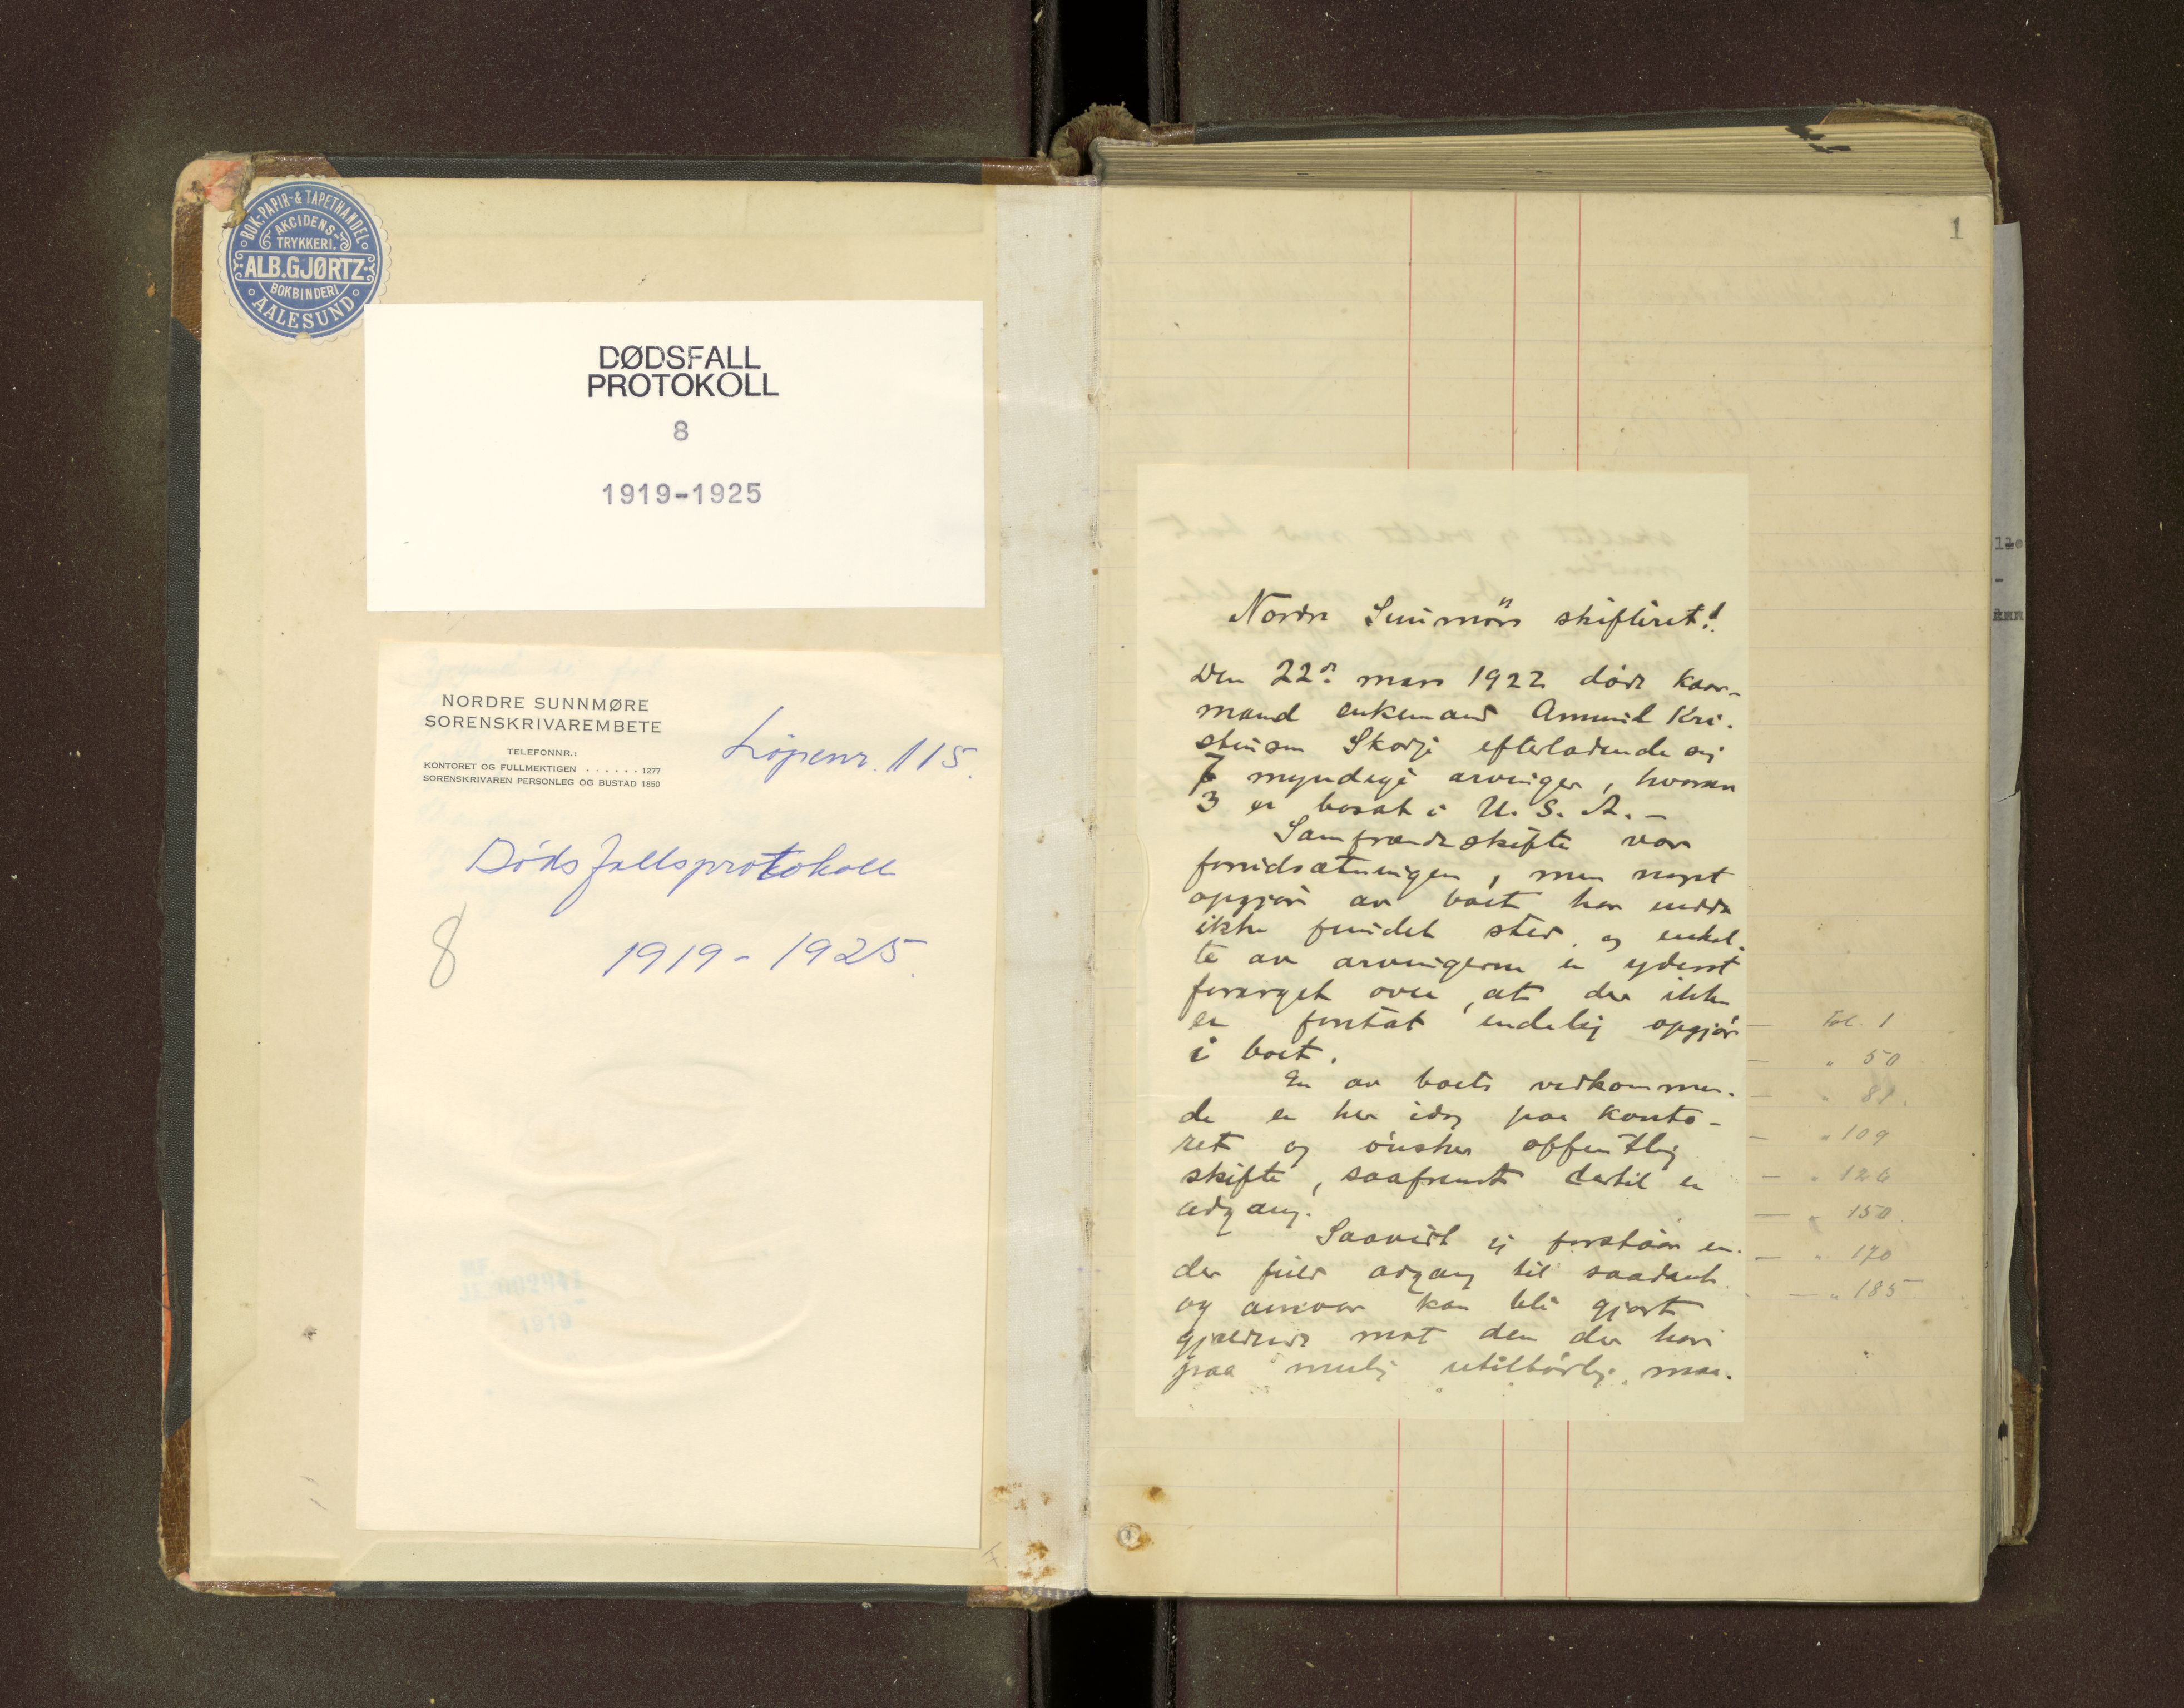 BOK-PAPIR-& TAPETHANDEL
AKCIDENS-
TRYKKERI.
ALB.GJØRTZ
BOKBINDERI
AALESUND
DØDSFALL
PROTOKOLL
8
1919-1925
NORDRE SUNNMØRE
SORENSKRIVAREMBETE
TELEFONNR.:
KONTORET OG FULLMEKTIGEN . . . . . . 1277
SORENSKRIVAREN PERSONLEG OG BUSTAD 1850
Løpenr. 115.
Dødsfallsprotokoll
8
1919 - 1925.
1919
F.
1
Nordre Sunmörs skifteret!
Den 22de mars 1922 døde kaar-
mand enkemand Ammund Kri-
stensen Skodje efterladende sig
7 myndige arvinger, hvorav
3 er bosat i U. S. A. -
Samfrændeskifte var
forudsætningen, men noget
opgjør av boet har endda
ikke fundet sted, og enkel-
te av arvingerne er yderst
forarget over, at der ikke
er foretat endelig opgjør
i boet.
En av boets vedkommen-
de er her idag paa konto-
ret og ønsker offentlig
skifte, saafremt dertil er
adgang.
Saavidt jeg forstaar er
der fuld adgang til saadant
og ansvar kan bli gjort
gjældende mot den der har
paa mulig utilbørlig maa-
Fol. 1
— " 50
— " 81.
— " 109
— " 126
— " 150.
— " 170
— " 185